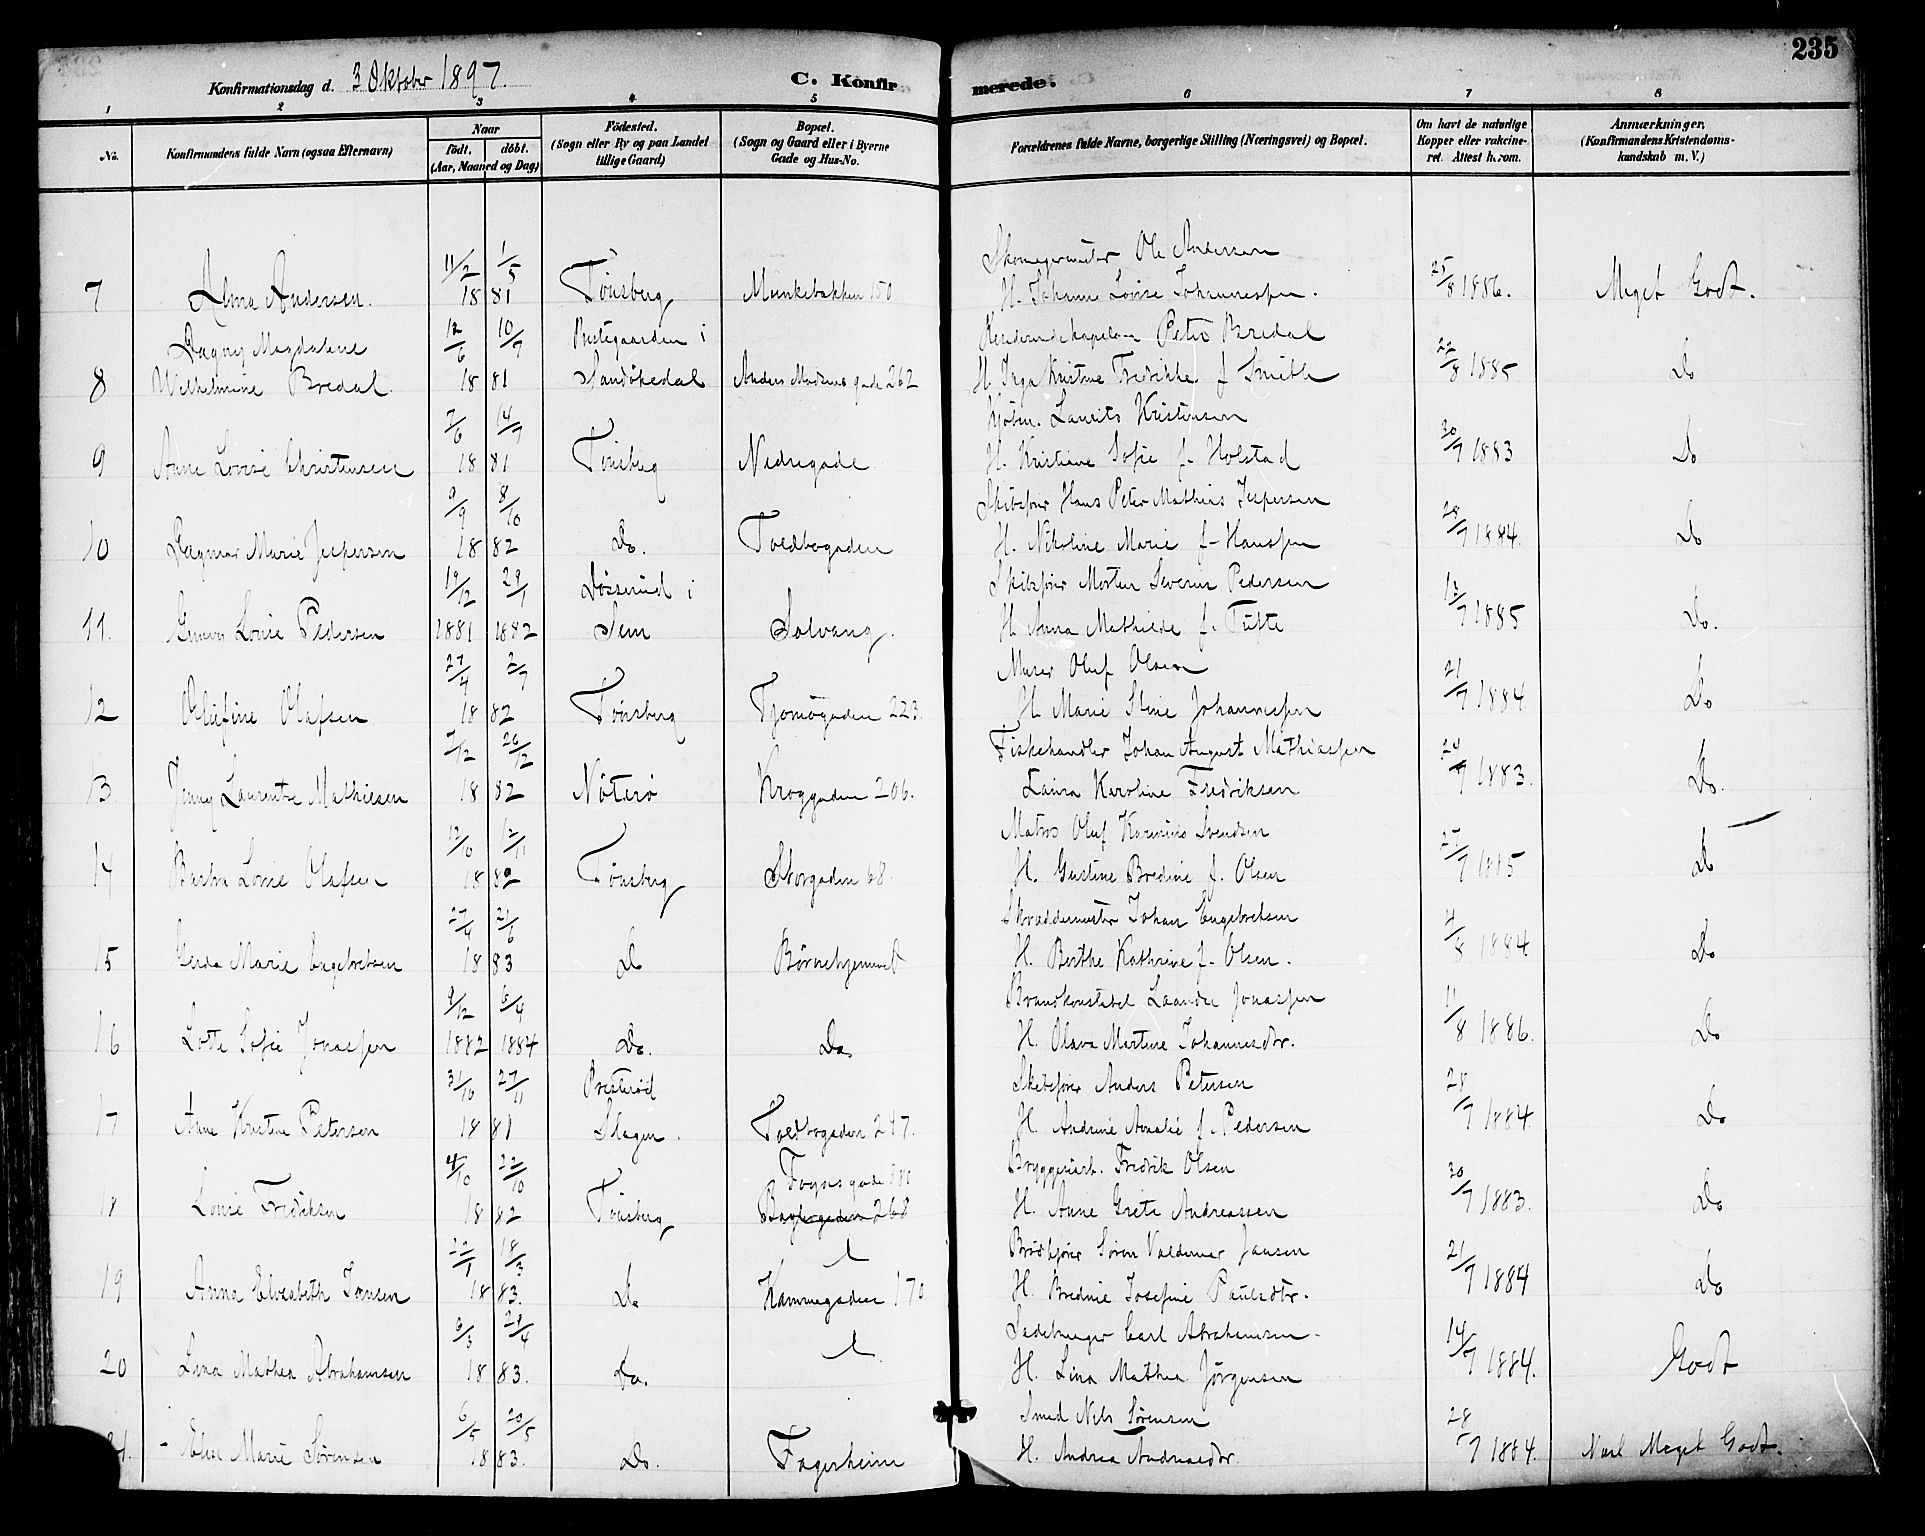 235
Konfirmationsdag d. 3 Oktober 1897. C. Konfirmerede.
1 2 3 4 5 6 7 8
No. Konfirmandens fulde Navn (ogsaa Efternavn) Naar født. døbt. (Aar, Maaned og Dag) Fødested. (Sogn eller By og paa Landet tillige Gaard) Bopæl. (Sogn og Gaard eller i Byerne Gade og Hus-No. Forældrenes fulde Navne, borgerlige Stilling (Næringsvei) og Bopæl. Om havt de naturlige Kopper eller vakcineret. Attest h.rom. Anmærkninger. (Konfirmandens Kristendomskundskab m. V.)
11/2 1/5 Skomagermester Ole Andersen
7 Alma Andersen. 18 81 Tönsberg Munkebakken 150 H. Johanne Lovise Johannessen. 25/8 1886. Meget Godt.
Dagny Magdalene 12/6 10/7 Prestegaarden i Residerende kapelan Peter Bredal
8 Wilhelmine Bredal 18 81 Sandökedal Anders Madsens gade 262 H. Inga Kristine Fredrikke f Smith 22/8 1885 Do
7/6 14/7 Kjöbm. Laurits Kristensen
9 Anne Lovise Christensen 18 81 Tönsberg Nedregade H. Kristiane Sofie f. Holstad 30/7 1883 Do
9/9 8/10 Skibsfører Hans Peter Mathias Jespersen
10 Dagmar Marie Jespersen 18 82 Do. Toldbogaden H. Nikoline Marie f. Hanssen 28/7 1884. Do
19/12 29/1 Døsserud i Skibsfører Morten Severin Pedersen
11. Gunvor Lovise Pedersen 1881 1882 Sem Solvang. H. Anna Mathilde f. Tufte 13/7 1885 Do.
27/4 2/7 Murer Oluf Olsen
12 Olufine Olafsen 18 82 Tönsberg Tjømögaden 223. H. Marie Stine Johannessen 21/7 1884 Do
7/12 26/12 Fiskehandler Johan August Mathiassen
13 Jenny Laurentze Mathiesen 18 82 Nöterö Kroggaden 206. Laura Karoline Fredriksen 24/7 1883. Do.
12/10 12/11 Matros Oluf Svendsen
14 Lovise Olafsen 18 82 Tönsberg Storgaden 68. H. Gustine Bredine f. Olsen 27/7 1885 Do
27/4 21/6 Skræddermester Johan Engebretsen
15 Gerda Marie Engebretsen 18 83 Do Børnehjemmet H. Berthe Kathrine f. Olsen. 4/8 1884 Do
9/12 6/4 Brandkonstabel Jonassen
16 Lotte Sofie Jonassen 1882 1884 Do. Do. H. Olava Martine Johannesdtr. 11/8 1886. Do
31/10 27/11 Presterød Skibsfører Anders Petersen
17 Anne Kristine Petersen 18 81 Slagen. Toldbogaden 247. H. Andrine Amalie f. Pedersen 28/7 1884. Do
4/10 22/10 Foynsgade 380 Bryggeriarb. Fredrik Olsen
18 Lovise Fredriksen 18 82 Tönsberg Baglergaden 268 H. Anne Grete Andreassen 30/7 1883. Do
22/1 18/3 Brødkjører Søren Valdemar Jansen
19 Anna Elisabeth Jansen 18 83. Do Kammegaden 170 H. Bredine Josefine Paulsdtr. 21/7 1884 Do
6/3 29/4 Sadelmager Carl Abrahamsen
20 Lina Mathea Abrahamsen 18 83. Do. H. Lina Mathea Jörgensen 14/7 1884. Godt
6/5 20/5 Smed Nels Sørensen
21. Elise Marie Sørensen 18 83. Do. Fagerheim H. Andrea Andreasdtr. 28/7 1884. Næsl Meget Godt.